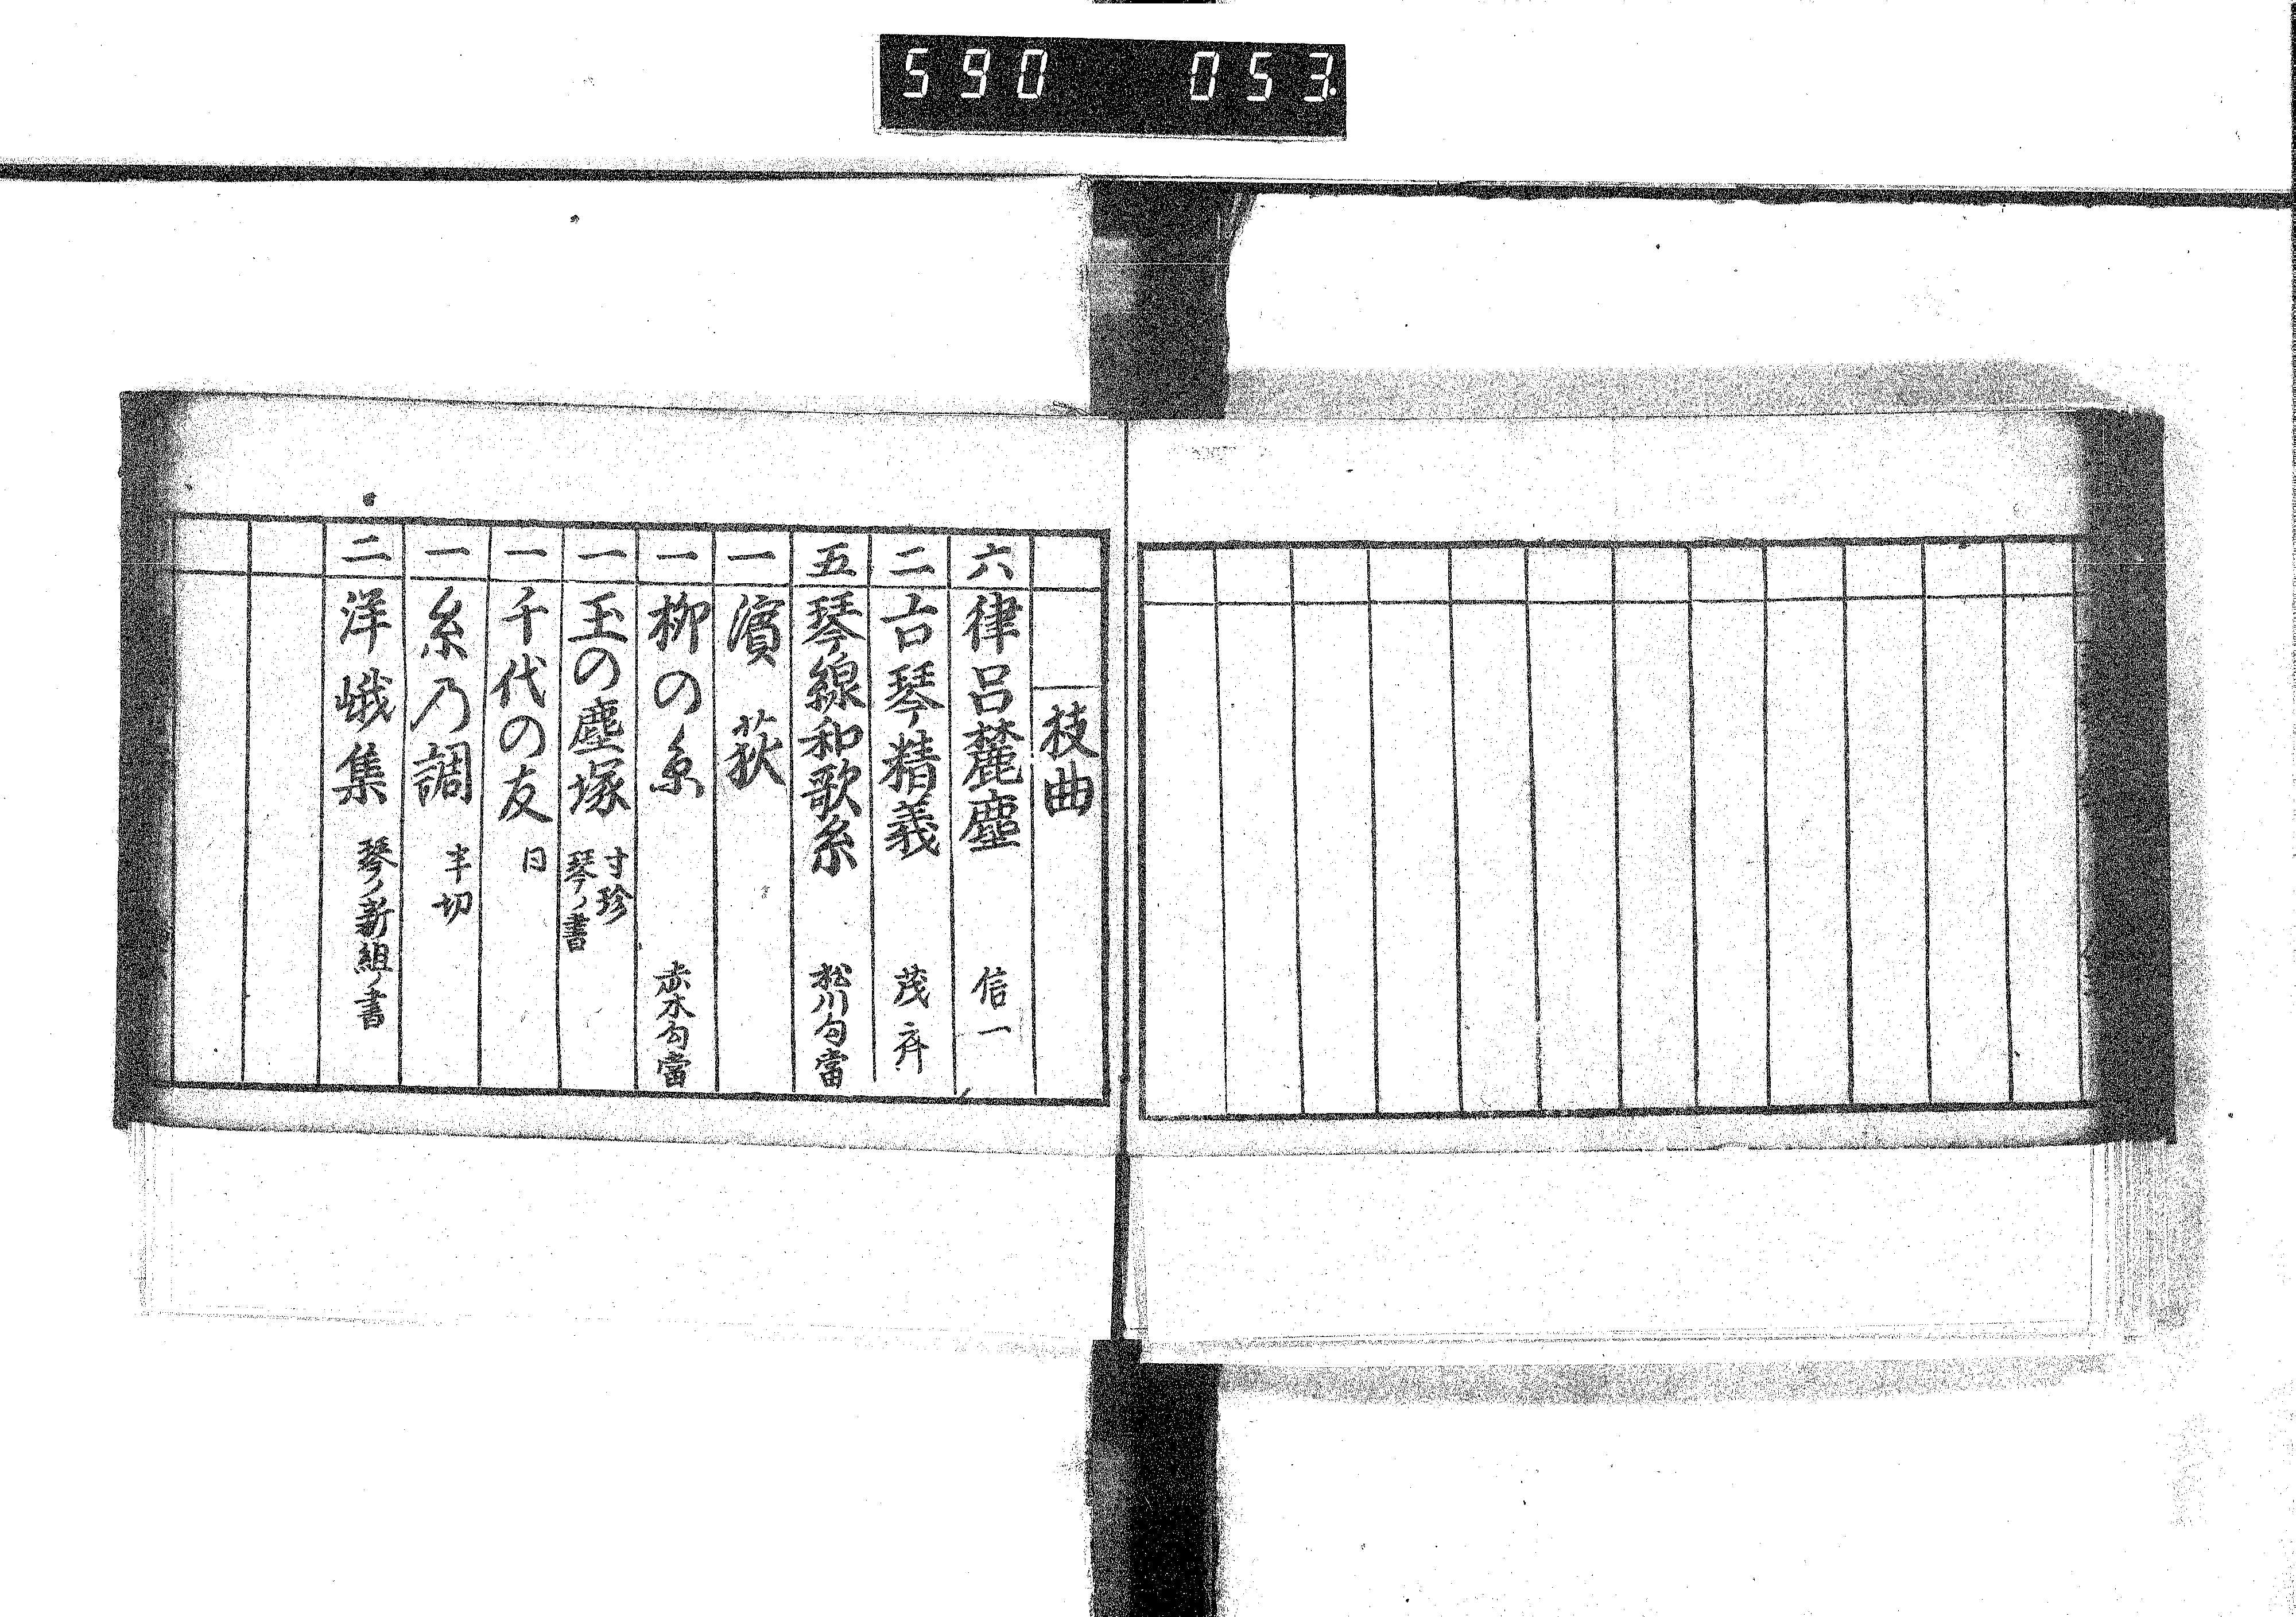 590 053
技曲
六 律呂麓塵 信一
二 古琴精義 茂斉
五 琴線和歌糸 松川勾當
一 濱荻
一 柳の糸 赤木勾當
一 玉の塵塚 寸珍 琴ノ書
一 千代の友 日
一 糸乃調 半切
二 洋峨集 琴ノ新組ノ書